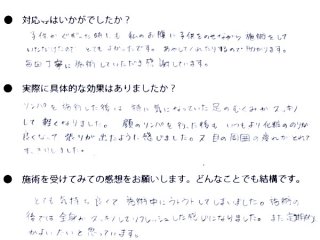 ● 対応はいかがでしたか？
子供がぐずった時も 私のお腹に子供をのせながら施術をして
いただけたので とてもよかったです。あやしてくれたりするので助かります。
毎回丁寧に施術していただき感謝しています。
● 実際に具体的な効果はありましたか？
リンパを施術した後は 特に気になっていた足のむくみがスッキリ
して軽くなりました。顔のリンパを行った後も いつもより化粧ののりが
良くなって 張りが出たように感じました。又 目の周囲の疲れがとれて
すっきりしました。
● 施術を受けてみての感想をお願いします。どんなことでも結構です。
とても気持ち良くて 施術中にウトウトしてしまいました。施術の
後では全身がスッキリしてリフレッシュした感じになりました。また定期的に
かよいたいと思っています。